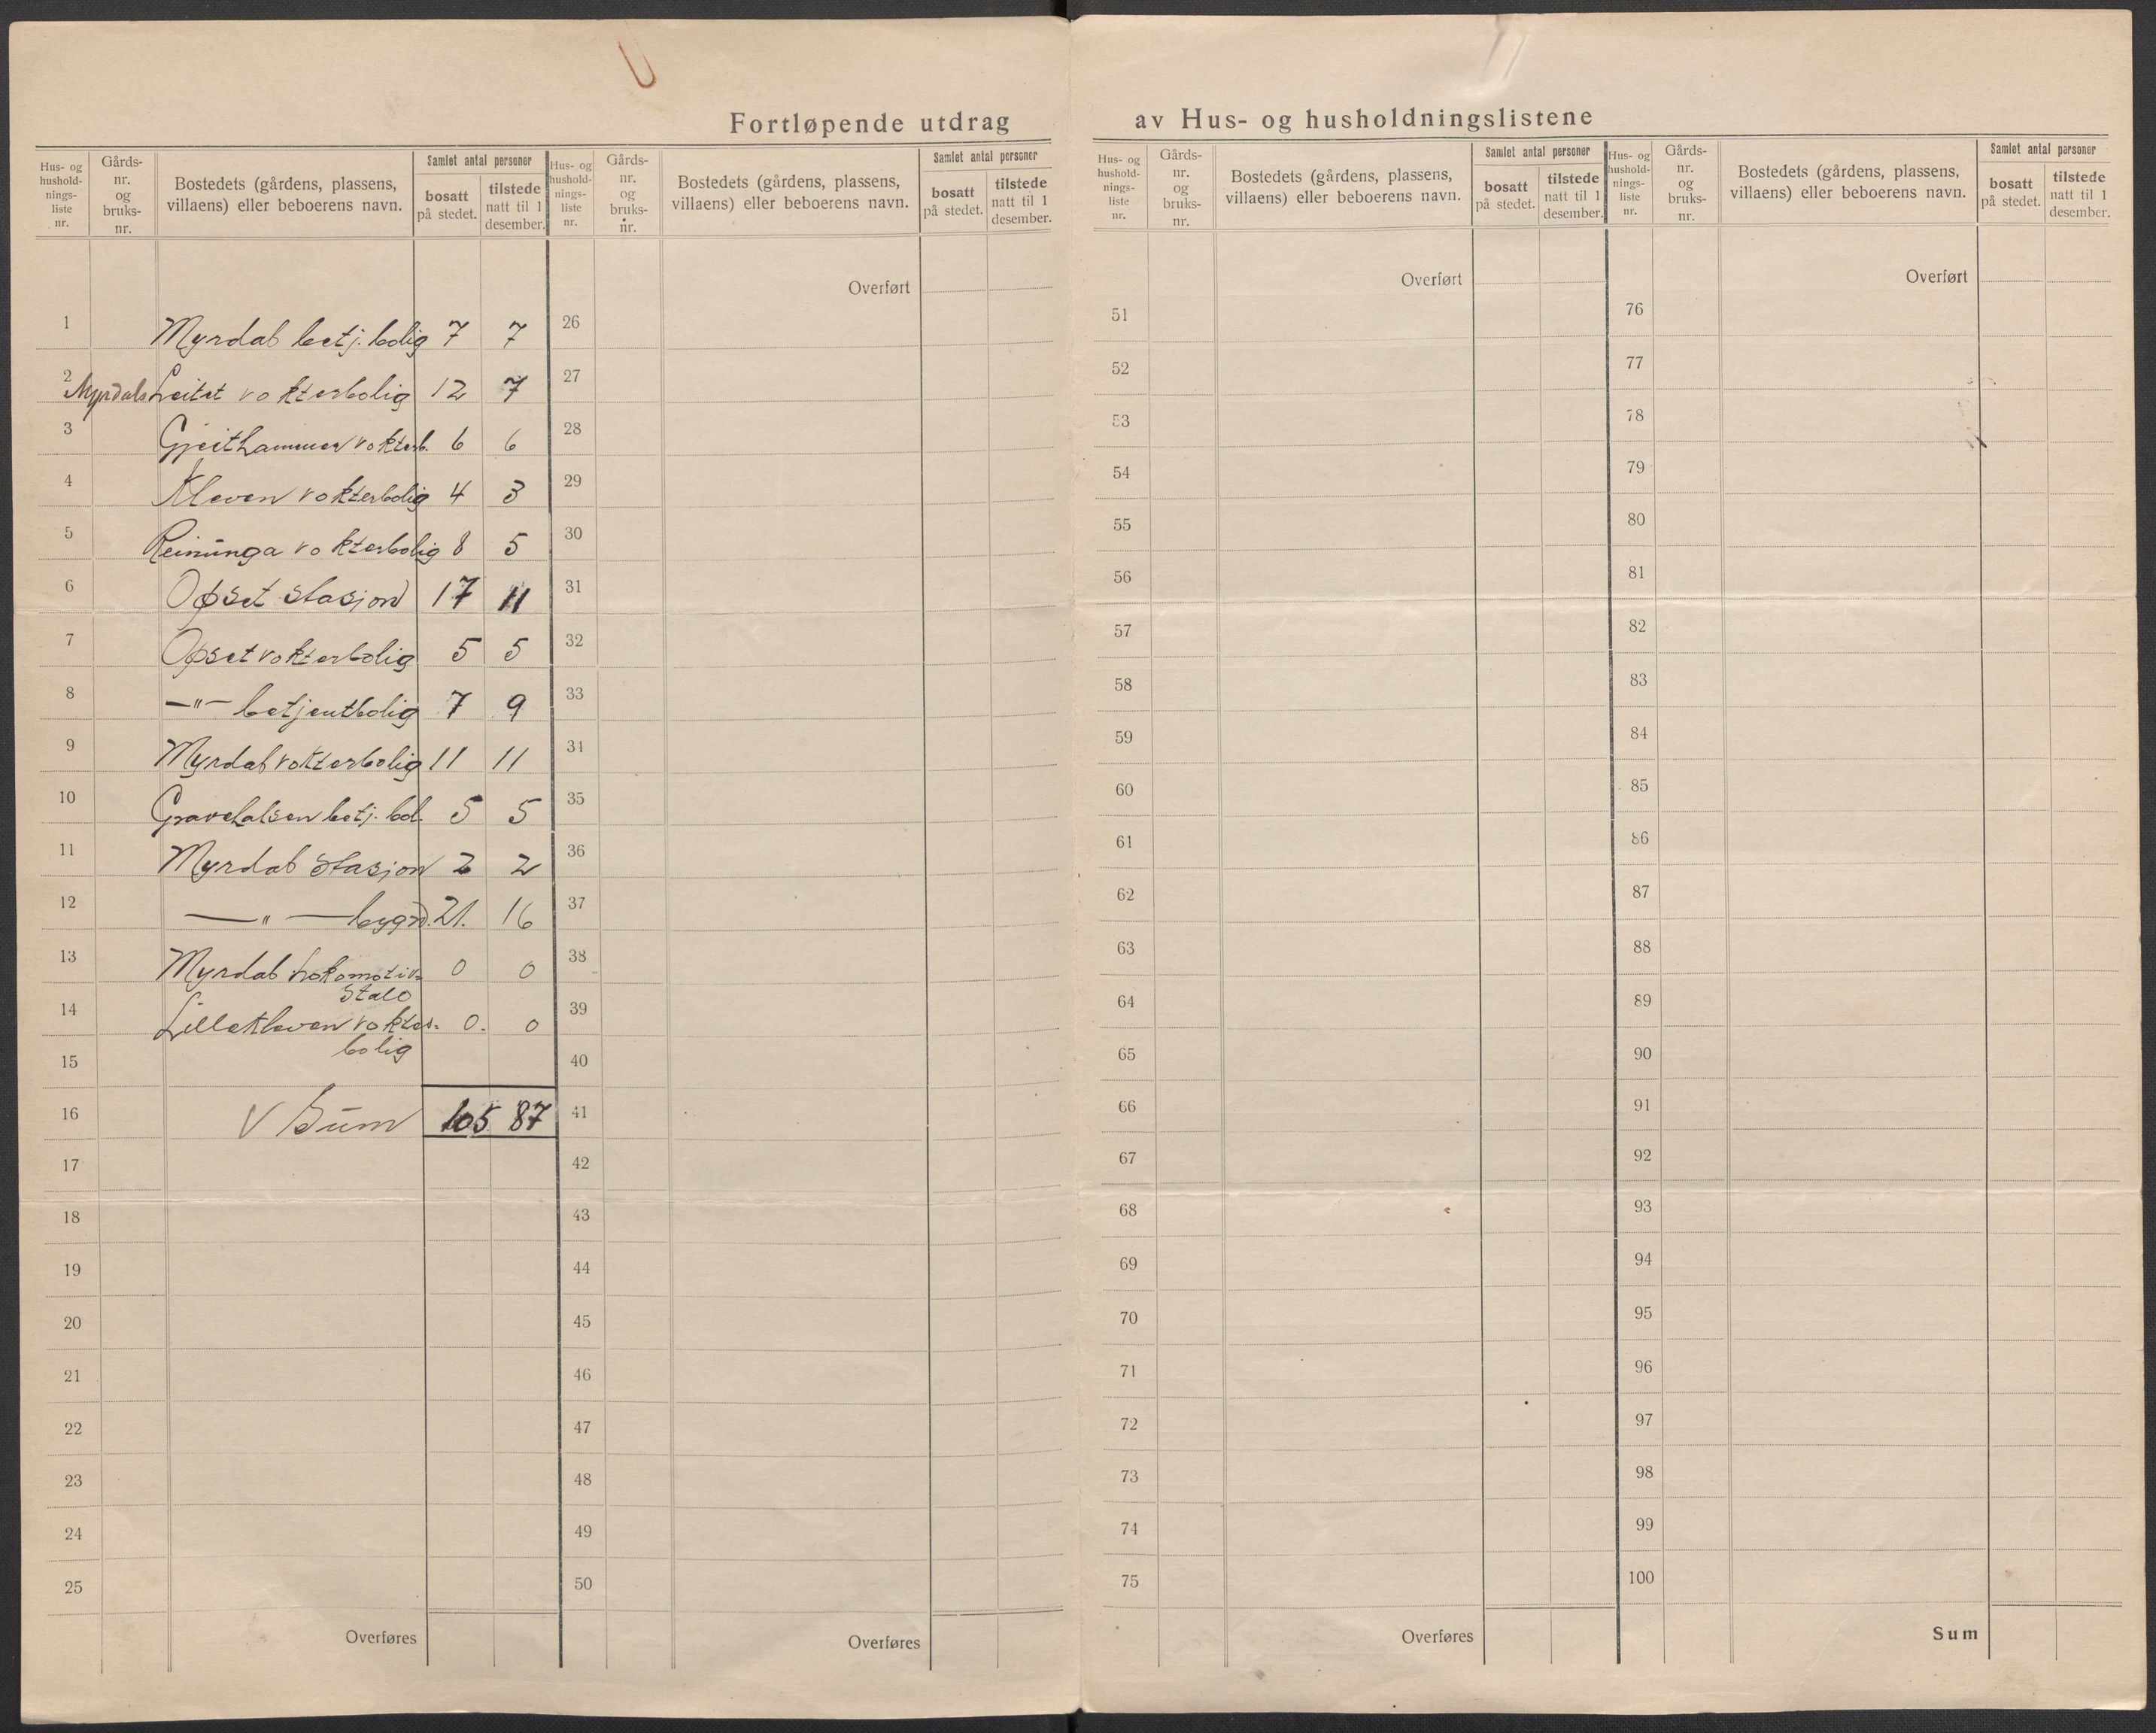 Fortløpende utdrag av Hus- og husholdningslistene
Hus- og husholdningsliste nr.
Gårdsnr. og bruksnr.
Bostedets (gårdens, plassens, villaens) eller beboerens navn.
Samlet antal personer
bosatt på stedet.
tilstede natt til 1 desember.
Hus- og husholdningsliste nr.
Gårdsnr. og bruksnr.
Bostedets (gårdens, plassens, villaens) eller beboerens navn.
Samlet antal personer
bosatt på stedet.
tilstede natt til 1 desember.
Hus- og husholdningsliste nr.
Gårdsnr. og bruksnr.
Bostedets (gårdens, plassens, villaens) eller beboerens navn.
Samlet antal personer
bosatt på stedet.
tilstede natt til 1 desember.
Hus- og husholdningsliste nr.
Gårdsnr. og bruksnr.
Bostedets (gårdens, plassens, villaens) eller beboerens navn.
Samlet antal personer
bosatt på stedet.
tilstede natt til 1 desember.
1 Myrdal betj. bolig 7 7
2 Myrdals Leitet vokterbolig 12 7
3 Gjeithammer vokterb. 6 6
4 Kleven vokterbolig 4 3
5 Reinunga vokterbolig 8 5
6 Opset stasjon 17 11
7 Opset vokterbolig 5 5
8 —"— betjentbolig 7 9
9 Myrdal vokterbolig 11 11
10 Gravehalsen betj. bol. 5 5
11 Myrdal Stasjon 2 2
12 —"— bygn. 21. 16
13 Myrdal Lokomotiv- 0 0
stall
14 Lillekleven vokter- 0. 0
bolig
15
16 V Sum 105 87
17
18
19
20
21
22
23
24
25
Overføres
Overført
26
27
28
29
30
31
32
33
34
35
36
37
38
39
40
41
42
43
44
45
46
47
48
49
50
Overføres
Overført
51
52
53
54
55
56
57
58
59
60
61
62
63
64
65
66
67
68
69
70
71
72
73
74
75
Overføres
Overført
76
77
78
79
80
81
82
83
84
85
86
87
88
89
90
91
92
93
94
95
96
97
98
99
100
Sum